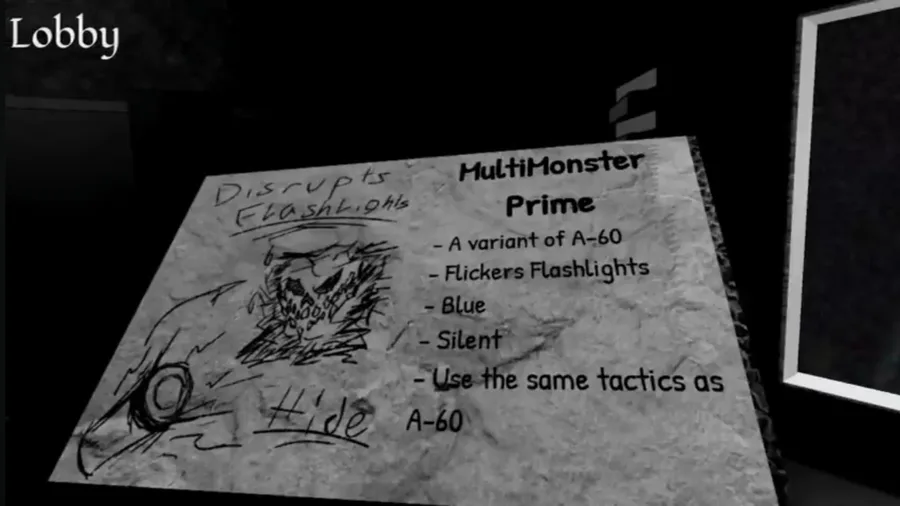 Lobby
Disrupts
Flashlights
Hide
MultiMonster
Prime
- A variant of A-60
- Flickers Flashlights
- Blue
- Silent
- Use the same tactics as
A-60